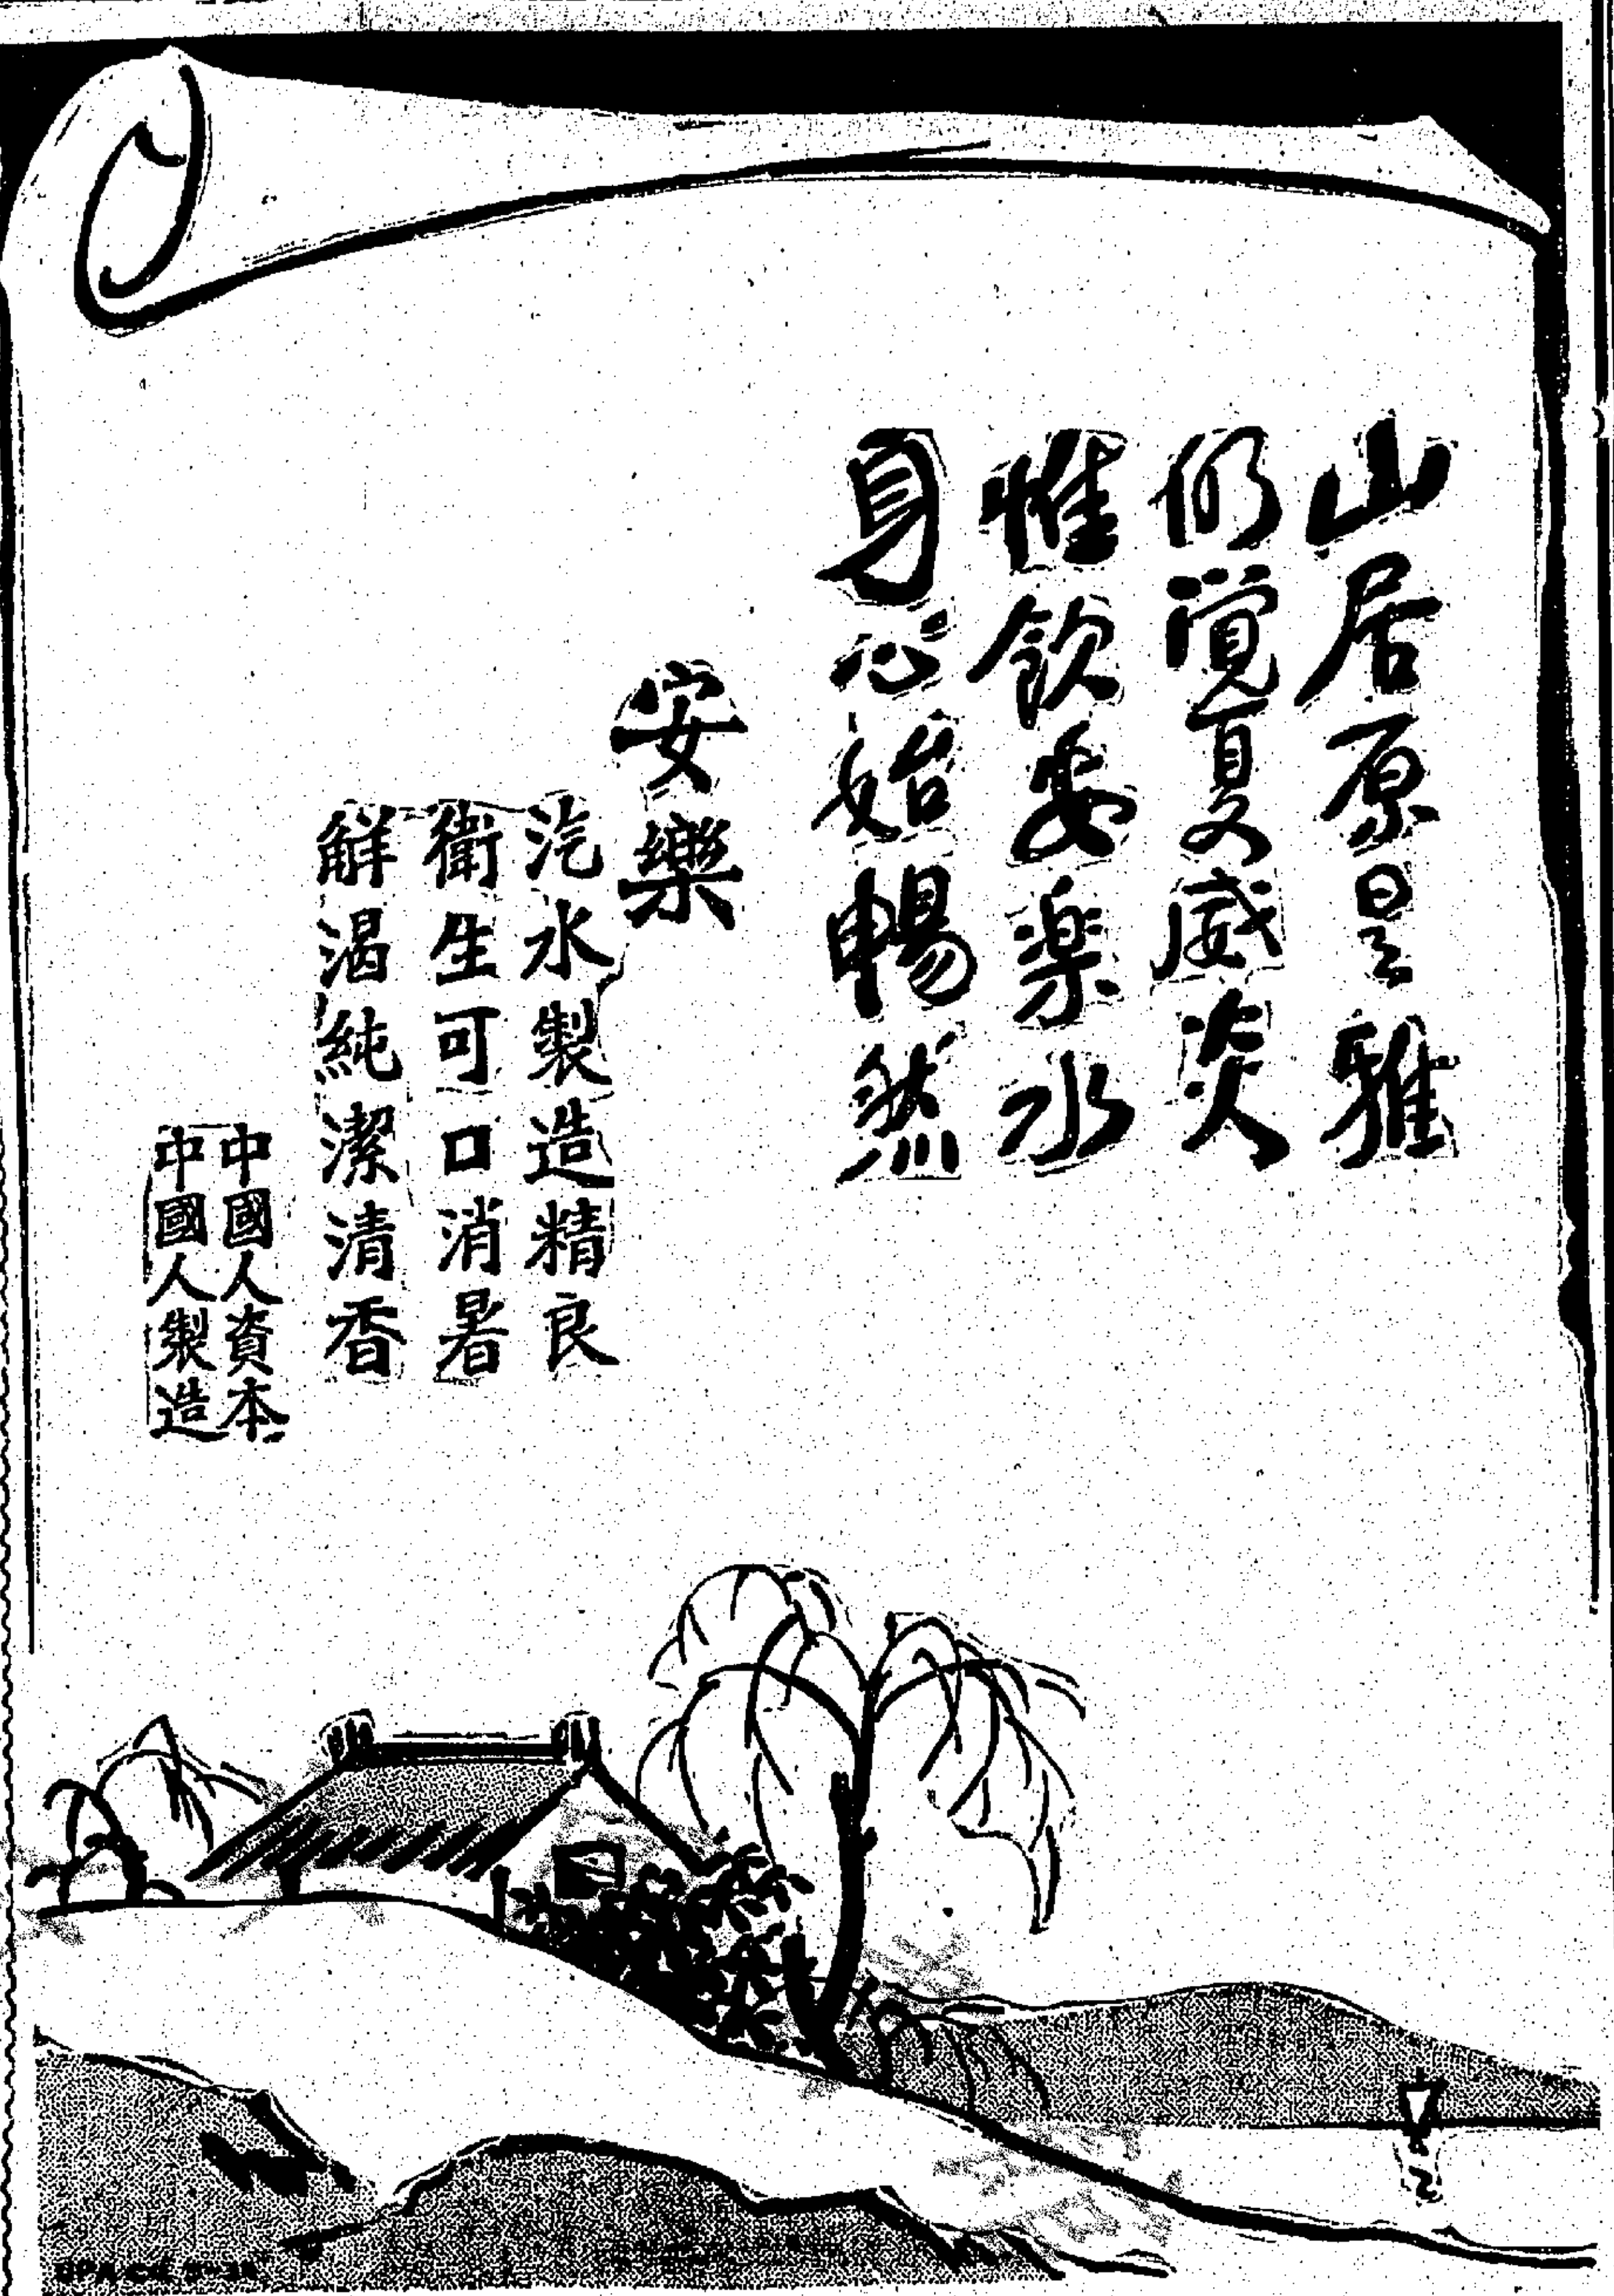 山居原是雅
仍覺夏威炎
惟飲安樂水
身心始暢然
安樂
汽水製造精良
衛生可口消暑
解渴純潔清香
中國人資本
中國人製造